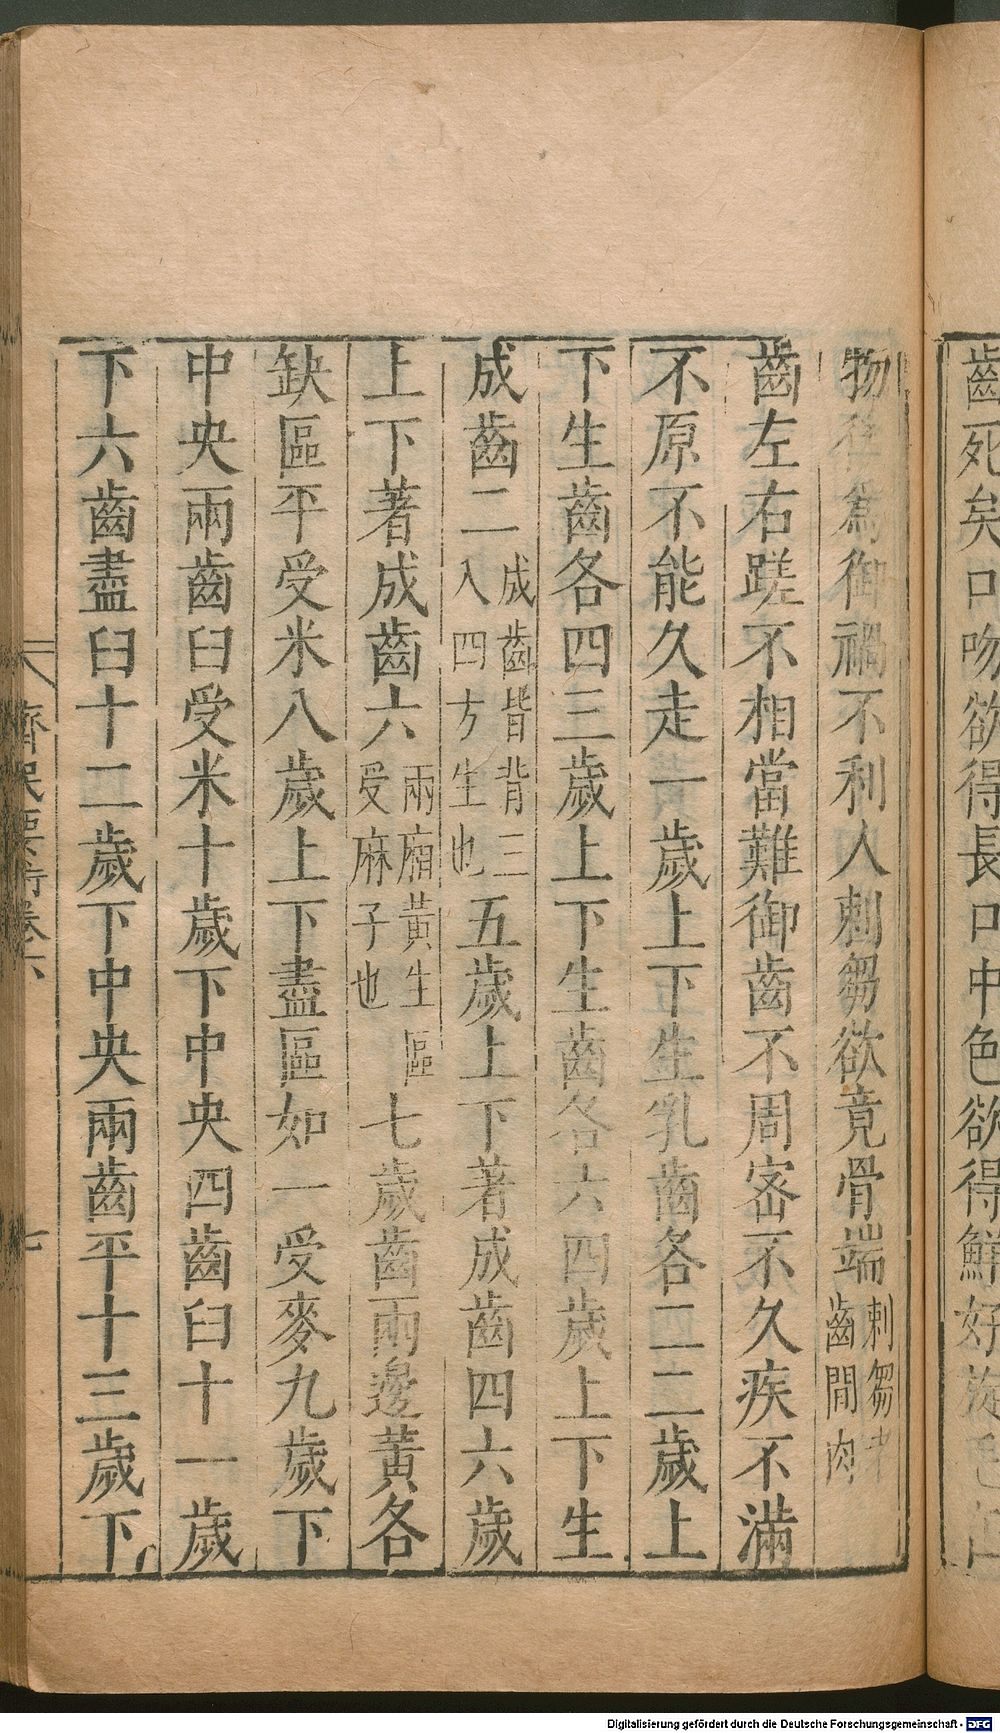 齒死矣口吻欲得長口中色欲得鮮好旋毛在
物後為御禍不利人刺芻欲竟骨端刺芻中齒間肉
齒左右蹉不相當難御齒不周密不久疾不滿
不原不能久走一歲上下生乳齒各二二歲上
下生齒各四三歲上下生齒各六四歲上下生
成齒二成齒皆背三入四方生也五歲上下著成齒四六歲
上下著成齒六兩廂黃生區受麻子也七歲齒兩邊黃各
缺區平受米八歲上下盡區如一受麥九歲下
中央兩齒臼受米十歲下中央四齒臼十一歲
下六齒盡臼十二歲下中央兩齒平十三歲下
齊民要術卷六 七
Digitalisierung gefördert durch die Deutsche Forschungsgemeinschaft - DFG